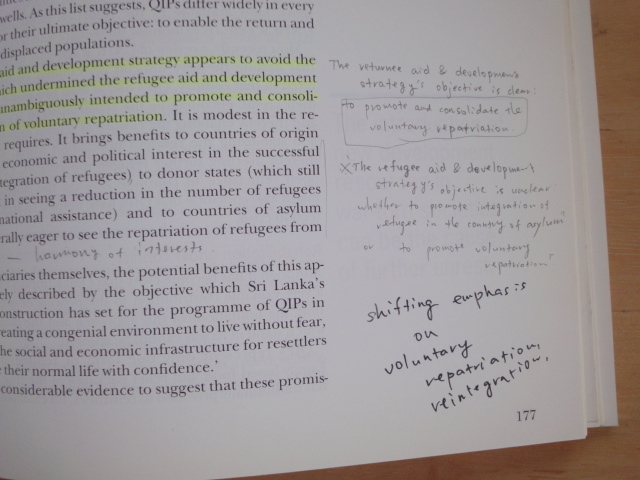 wells. As this list suggests, QIPs differ widely in every
or their ultimate objective: to enable the return and
displaced populations.
aid and development strategy appears to avoid the
ich undermined the refugee aid and development
unambiguously intended to promote and consoli-
n of voluntary repatriation. It is modest in the re-
requires. It brings benefits to countries of origin
economic and political interest in the successful
tegration of refugees) to donor states (which still
in seeing a reduction in the number of refugees
national assistance) and to countries of asylum
rally eager to see the repatriation of refugees from
– harmony of interests.
ciaries themselves, the potential benefits of this ap-
ely described by the objective which Sri Lanka's
onstruction has set for the programme of QIPs in
eating a congenial environment to live without fear,
he social and economic infrastructure for resettlers
their normal life with confidence.'
considerable evidence to suggest that these promis-
The returnee aid & development
strategy's objective is clear:
to promote and consolidate the
voluntary repatriation.
X "The refugee aid & development
strategy's objective is unclear:
whether to promote integration of
refugee in the country of asylum"
or to promote voluntary
repatriation"
shifting emphasis
on
voluntary
repatriation,
reintegration,
177